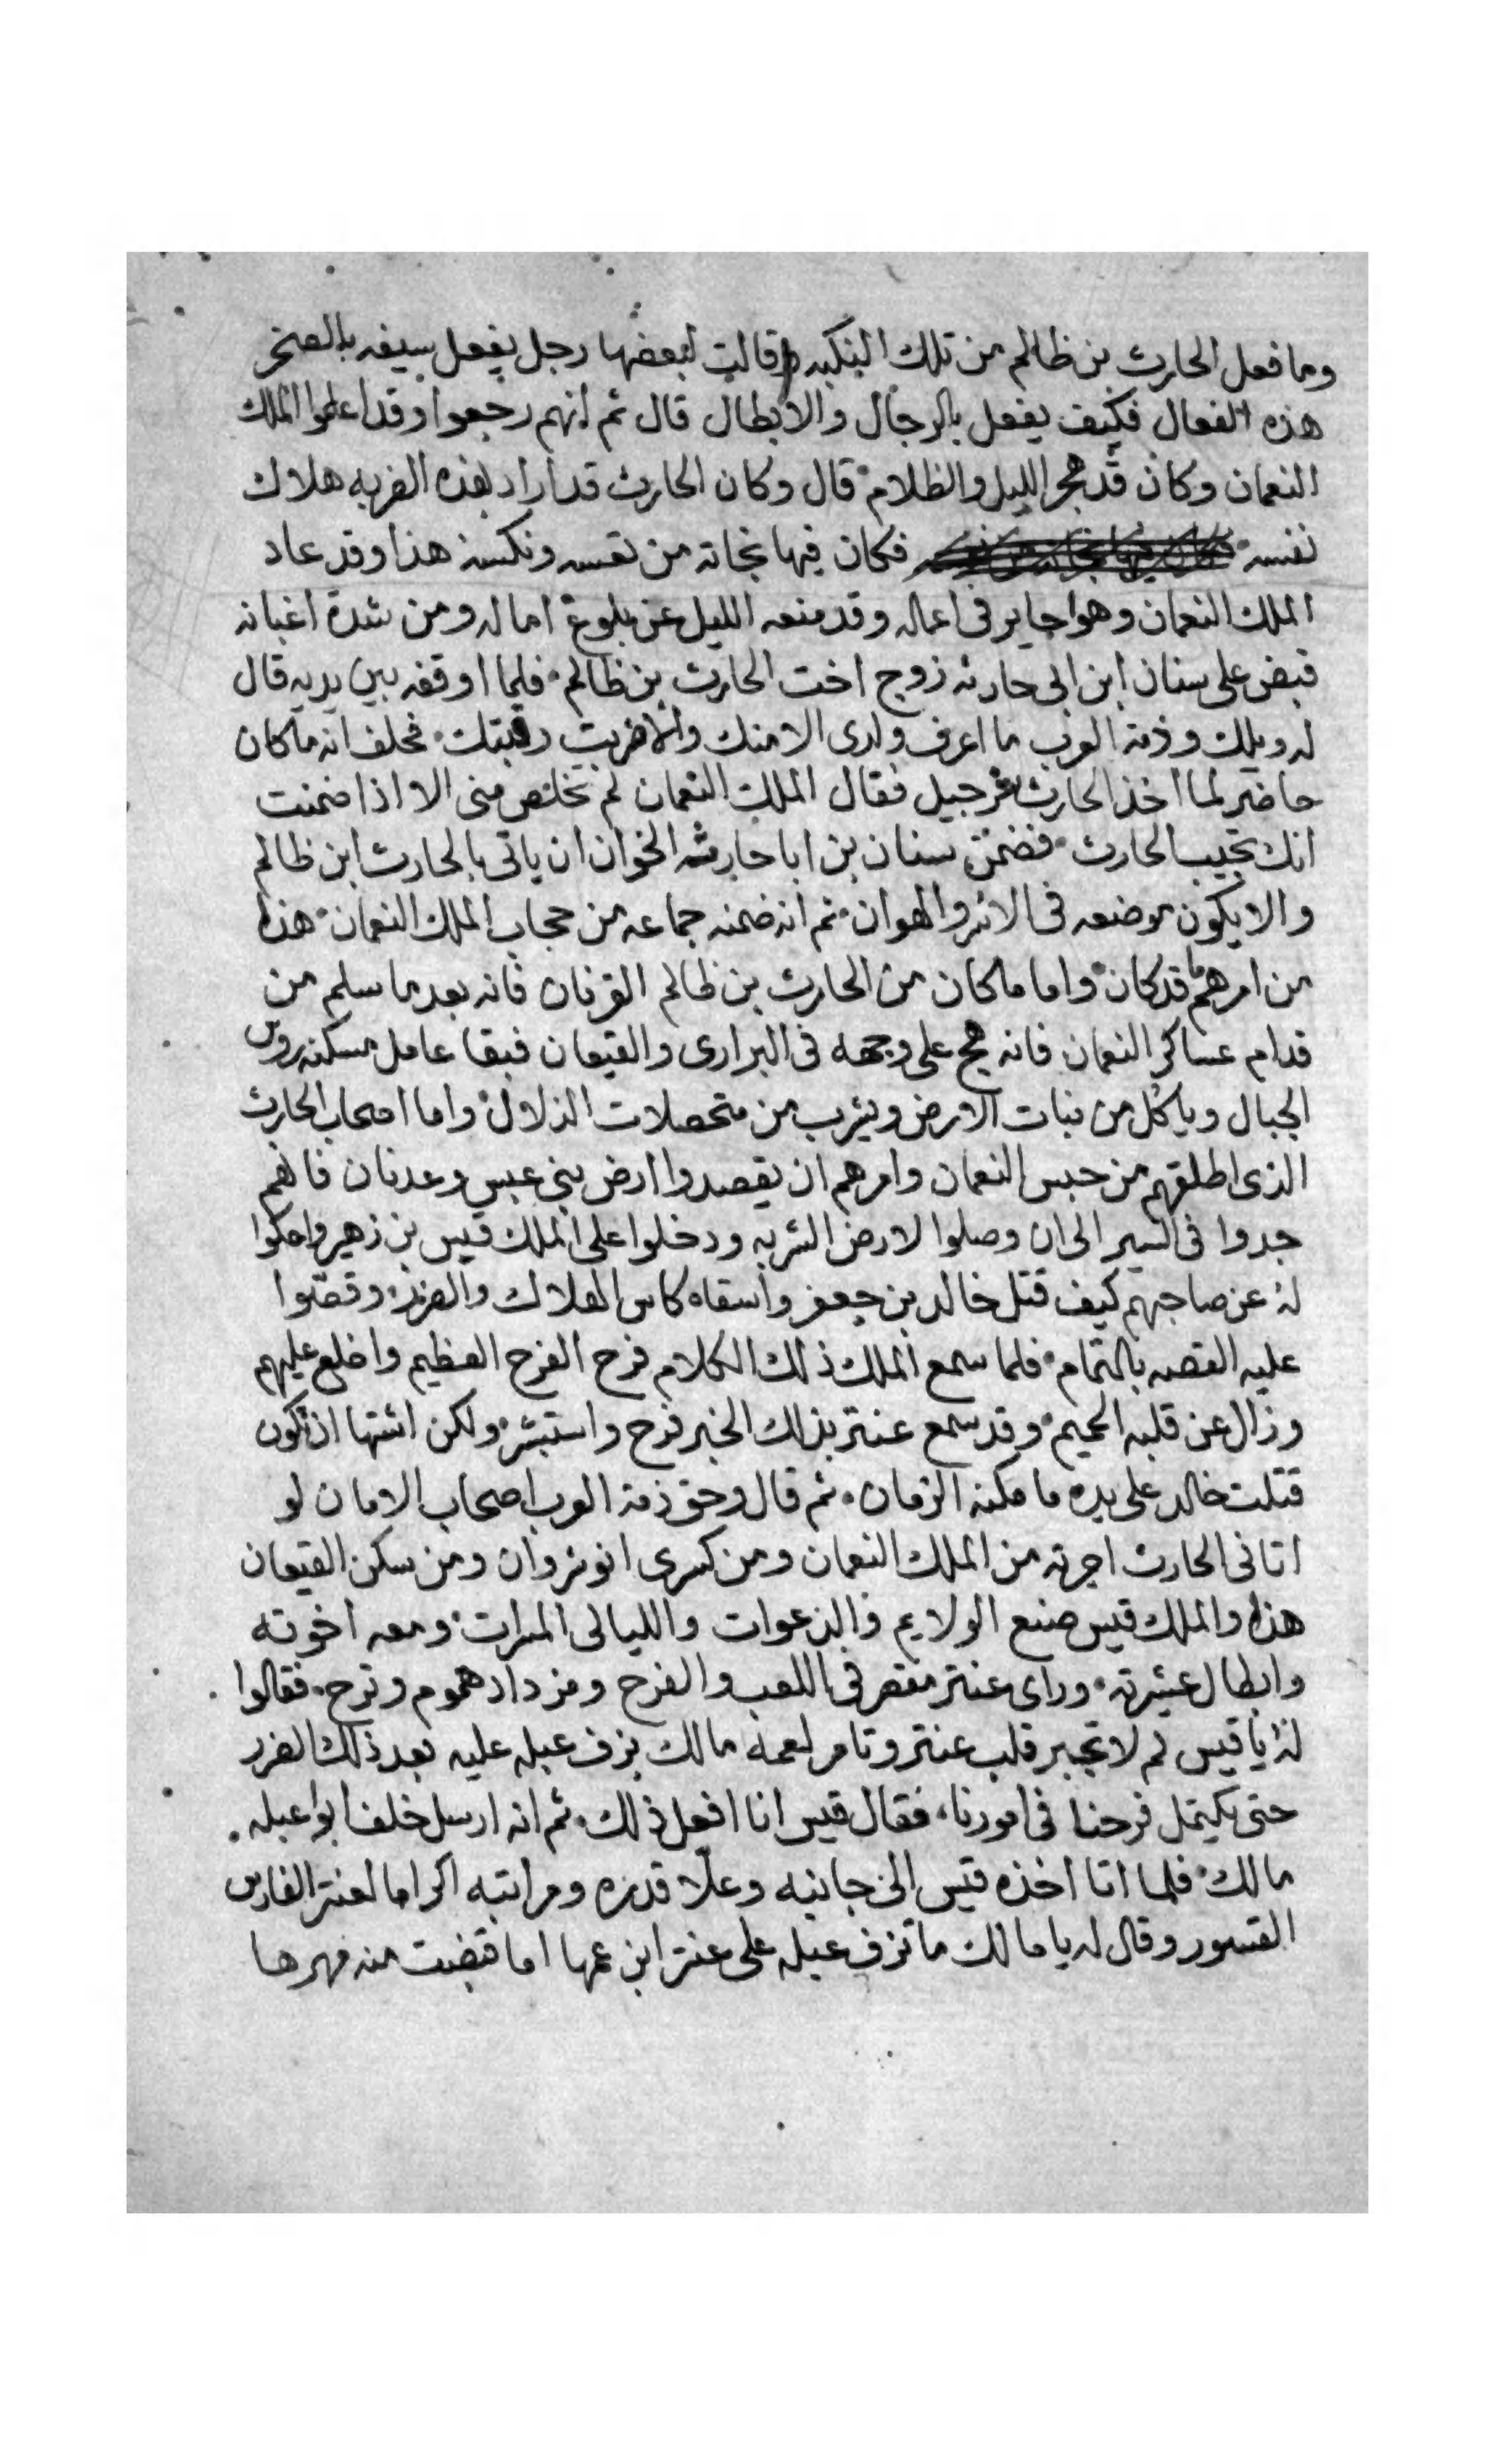 وما فعل الحارث بن ظالم من تلك النكبه قالت لبعضها رجل يفعل بسيفه بالصخر
هذه الفعال فكيف يفعل بالرجال والابطال قال ثم انهم رجعوا وقد اعلموا الملك
النعمان وكان قد هجر الليل والظلام قال وكان الحارث قد اراد بهذه الضربه هلاك
نفسه فكان فيها نجاته من تعسه ونكسه هذا وقد عاد
الملك النعمان وهوا حاير في اعماله وقد منعه الليل عن بلوغ اماله ومن شدة اغبانه
قبض على سنان ابن ابى حارثه زوج اخت الحارث بن ظالم فلما اوقفه بين يديه قال
له ويلك وذمة العرب ما اعرف ولدى الا منك والا ضربت رقبتك فحلف انه ما كان
حاضر لما اخذ الحارث شرجبيل فقال الملك النعمان لم تخلص منى الا اذا ضمنت
انك تجيب الحارث فضمن سنان بن ابا حارثه الخوان ان ياتى بالحارث ابن ظالم
والا يكون موضعه فى الاسر والهوان ثم انه ضمنه جماعه من حجاب الملك النعمان هذا
من امرهم قد كان واما ما كان من الحارث بن ظالم القرنان فانه بعد ما سلم من
قدام عساكر النعمان فانه هج على وجهه فى البرارى والقيعان فبقا عامل مسكنه روس
الجبال وياكل من نبات الارض ويشرب من متحصلات الزلال واما اصحاب الحارث
الذى اطلقهم من حبس النعمان وامرهم ان يقصدوا ارض بنى عبس وعدنان فانهم
جدوا فى السير الى ان وصلوا لارض الشربه ودخلوا على الملك قيس بن زهير واحكوا
له عن صاحبهم كيف قتل خالد بن جعفر واسقاه كاس الهلاك والضرر وقصوا
عليه القصه بالتمام فلما سمع الملك ذلك الكلام فرح الفرح العظيم واخلع عليهم
وزال عن قلبه الحميم وقد سمع عنتر بذلك الخبر فرح واستبشر ولكن اشتها ان تكون
قتلت خالد على يده ما مكنه الزمان ثم قال وحق ذمة العرب اصحاب الامان لو
اتانى الحارث اجرته من الملك النعمان ومن كسرى انوشروان ومن سكن القيعان
هذا والملك قيس صنع الولايم والدعوات والليالى المسرات ومعه اخوته
وابطال عشيرته وراى عنتر مقصر فى اللعب والفرح ومزداد هموم وترح فقالوا
له يا قيس لم لا تجبر قلب عنتر وتامر لعمه مالك يزف عبله عليه بعد ذلك الضرر
حتى يكتمل فرحنا فى امورنا فقال قيس انا افعل ذلك ثم انه ارسل خلف ابوا عبله
مالك فلما اتا اخذه قيس الى جانبه وعلا قدره ومراتبه اكراما لعنتر الفارس
القسور وقال له يا مالك ما تزف عبله على عنتر ابن عمها اما قبضت منه مهرها